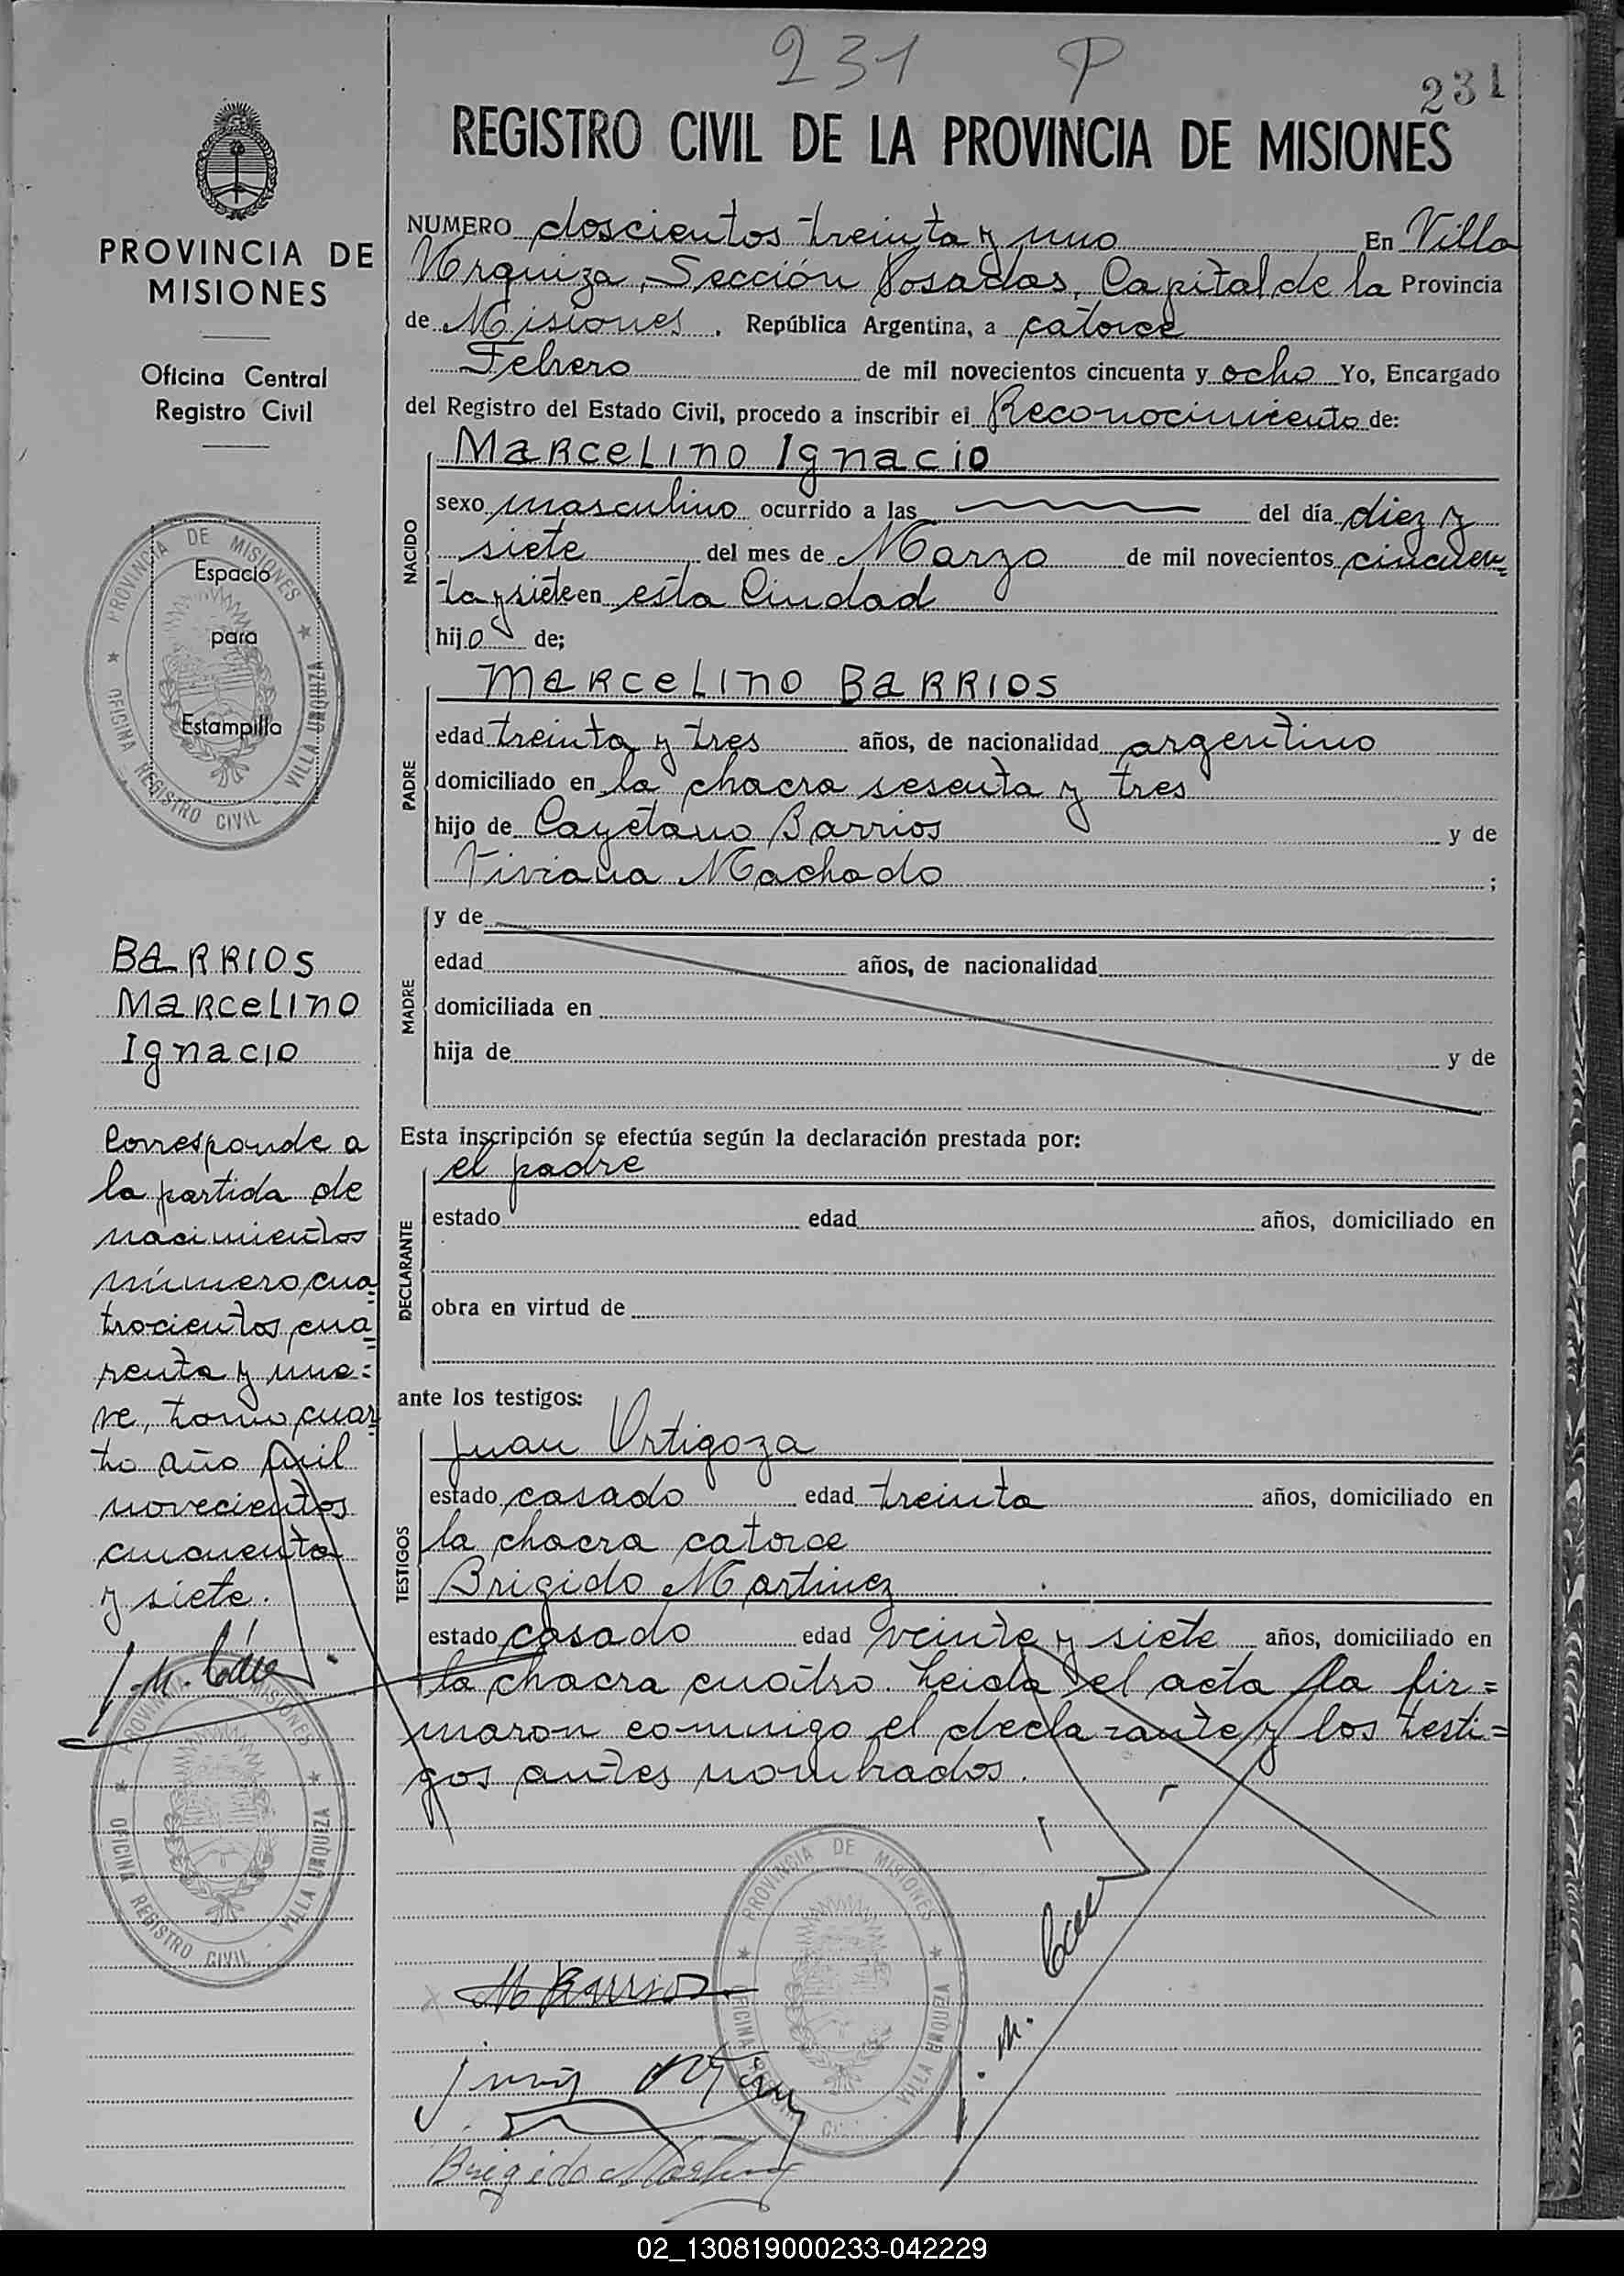 231 P
231
REGISTRO CIVIL DE LA PROVINCIA DE MISIONES
PROVINCIA DE
MISIONES
Oficina Central
Registro Civil
PROVINCIA DE MISIONES
OFICINA REGISTRO CIVIL - VILLA URQUIZA
Espacio
para
Estampilla
BARRIOS
Marcelino
Ignacio
Corresponde a
la partida de
nacimientos
número cua
trocientos cua
renta y nue=
ve, tomo cuar
to año mil
novecientos
cincuenta
y siete.
PROVINCIA DE MISIONES
OFICINA REGISTRO CIVIL - VILLA URQUIZA
NUMERO doscientos treinta y uno En Villa
Urquiza, Sección Posadas, Capital de la Provincia
de Misiones, República Argentina, a catorce
Febrero de mil novecientos cincuenta y ocho Yo, Encargado
del Registro del Estado Civil, procedo a inscribir el Reconocimiento de:
NACIDO
Marcelino Ignacio
sexo masculino ocurrido a las del día diez y
siete del mes de Marzo de mil novecientos cincuen=
ta y siete en esta Ciudad
hijo de;
PADRE
Marcelino Barrios
edad treinta y tres años, de nacionalidad argentino
domiciliado en la chacra sesenta y tres
hijo de Cayetano Barrios y de
Viviana Machado ;
MADRE
y de
edad años, de nacionalidad
domiciliada en
hija de y de
Esta inscripción se efectúa según la declaración prestada por:
DECLARANTE
el padre
estado edad años, domiciliado en
obra en virtud de
ante los testigos:
TESTIGOS
Juan Ortigoza
estado casado edad treinta años, domiciliado en
la chacra catorce
Brigido Martinez
estado casado edad veinte y siete años, domiciliado en
la chacra cuatro. Leida el acta la fir=
maron conmigo el declarante y los testi=
gos antes nombrados.
PROVINCIA DE MISIONES
OFICINA REGISTRO CIVIL - VILLA URQUIZA
M Barrios
Brigido Martinez
02_130819000233-042229